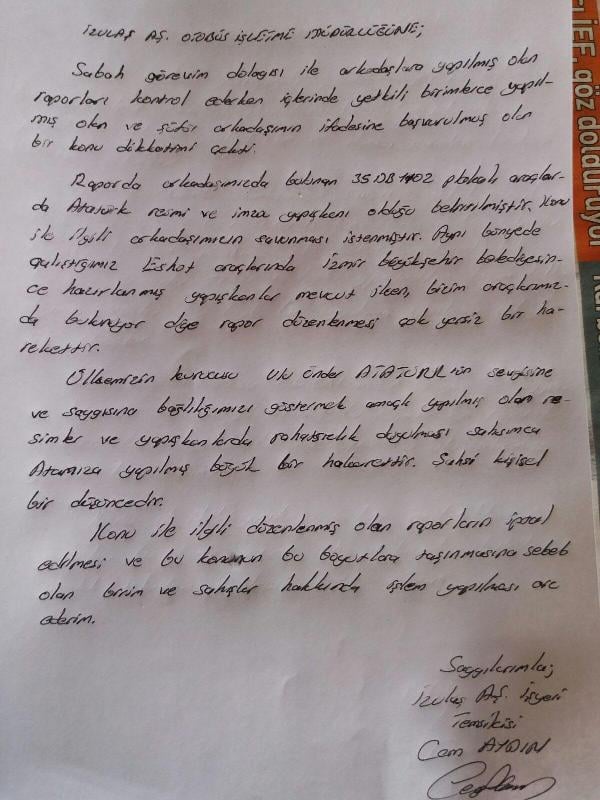 İZULAŞ AŞ. OTOBÜS İŞLETME MÜDÜRLÜĞÜNE;
Sabah görevim dolayısı ile arkadaşlara yapılmış olan
raporları kontrol ederken içlerinde yetkili birimlerce yapıl-
mış olan ve şöför arkadaşımın ifadesine başvurulmuş olan
bir konu dikkatimi çekti.
Raporda arkadaşımızda bulunan 35 DB 1402 plakalı araçlar-
da Atatürk resmi ve imza yapışkanı olduğu belirtilmiştir. Konu
ile ilgili arkadaşımızın savunması istenmiştir. Aynı bünyede
çalıştığımız Eshot araçlarında İzmir büyükşehir belediyesin-
ce hazırlanmış yapışkanlar mevcut iken, bizim araçlarımız-
da bulunuyor diye rapor düzenlenmesi çok yersiz bir ha-
rekettir.
Ülkemizin kurucusu Ulu Önder ATATÜRK'ün sevgisine
ve saygısına bağlılığımızı göstermek amaçlı yapılmış olan re-
simler ve yapışkanlarda rahatsızlık duyulması şahsımca
Atamıza yapılmış büyük bir hakarettir. Şahsi kişisel
bir düşüncedir.
Konu ile ilgili düzenlenmiş olan raporların iptal
edilmesi ve bu konunun bu boyutlara taşınmasına sebeb
olan birim ve şahışlar hakkında işlem yapılması arz
ederim.
Saygılarımla;
İzulaş AŞ. İşyeri
Temsilcisi
Cem AYDIN
İFF, göz dolduruyor